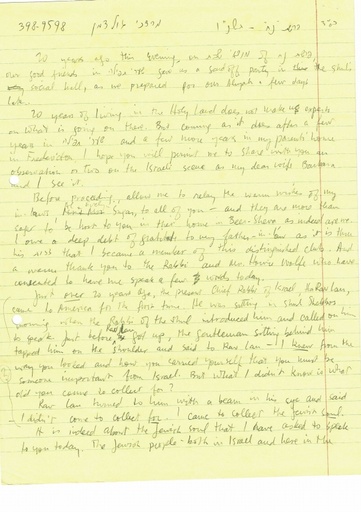 398-9598
20 years ago this evening,
our good friends in gave us a sendoff party in the shul's
social hall, as we prepared for our Aliyah a few days
later.
20 years of living in the Holy Land does not make us experts
on what is going on there. But coming as it does after a few
years in and a few more years in my parents' home
in I hope you will permit me to share with you an
observation or two on the Israeli scene as my dear wife Barbara
and I see it.
Before proceeding, allow me to relay the warm wishes of my
in-laws to all of you - and they are more than
safer to be here to you in their home - as indeed are we.
I owe a deep debt of gratitude to my father-in-law as it is thru
his that I became a member of this distinguished club. And
a warm thank you to the Rabbi and Mr. Wolfe who have
consented to have me speak a few words today.
Just over 20 years ago, the present Chief Rabbi of Israel, HaRav Lau,
came to America for the first time. He was sitting in shul Shabbos
morning when the Rabbi of the shul introduced him and called on him
to speak. Just before Rav Lau got up, the gentleman sitting behind him
tapped him on the shoulder and said to Rav Lau - I knew from the
way you looked and how you carried yourself that you must be
someone important from Israel. But what I didn't know is what
did you come to collect for?
Rav Lau turned to him with a beam in his eye and said
- I didn't come to collect for. I came to collect the Jewish soul.
It is indeed about the Jewish soul that I have asked to speak
to you today. The Jewish people - both in Israel and here in the